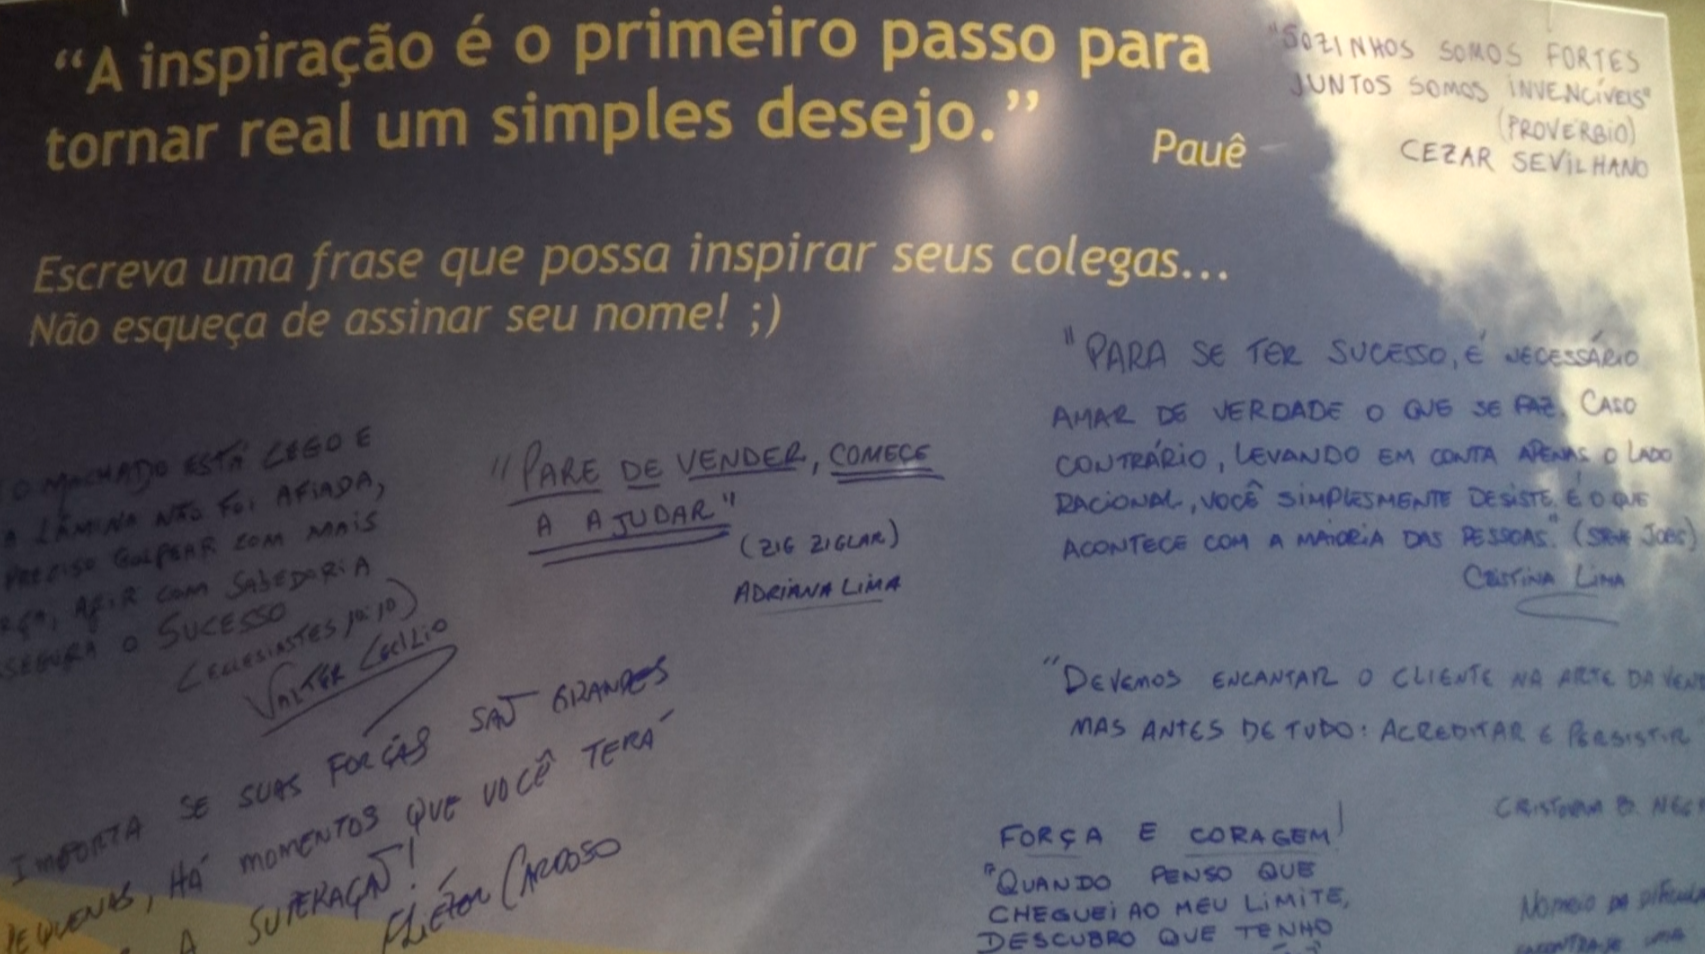 “A inspiração é o primeiro passo para
tornar real um simples desejo.”
Pauê
"SOZINHOS SOMOS FORTES
JUNTOS SOMOS INVENCÍVEIS"
(PROVÉRBIO)
CEZAR SEVILHANO
Escreva uma frase que possa inspirar seus colegas...
Não esqueça de assinar seu nome! ;)
O MACHADO ESTÁ CEGO E
A LÂMINA NÃO FOI AFIADA,
PRECISO GOLPEAR COM MAIS
AGIR COM SABEDORIA
SEGURA O SUCESSO
(ECLESIASTES 10:10)
VALTER CECILIO
"PARE DE VENDER, COMECE
A AJUDAR"
(ZIG ZIGLAR)
ADRIANA LIMA
"PARA SE TER SUCESSO, É NECESSÁRIO
AMAR DE VERDADE O QUE SE FAZ. CASO
CONTRÁRIO, LEVANDO EM CONTA APENAS O LADO
RACIONAL, VOCÊ SIMPLESMENTE DESISTE. É O QUE
ACONTECE COM A MAIORIA DAS PESSOAS." (STEVE JOBS)
CRISTINA LIMA
IMPORTA SE SUAS FORÇAS SAÕ GRANDES
PEQUENAS, HÁ MOMENTOS QUE VOCÊ TERÁ
A SUPERAÇAÕ!
ELIÉZER CARDOSO
"DEVEMOS ENCANTAR O CLIENTE NA ARTE DA VEN
MAS ANTES DE TUDO: ACREDITAR E PERSISTIR
FORÇA E CORAGEM!
"QUANDO PENSO QUE
CHEGUEI AO MEU LIMITE,
DESCUBRO QUE TENHO
NO MEIO DA
ENCONTRA-SE UMA